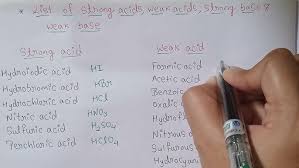 * List of strong acids, weak acids, strong base &
weak base
Strong acid
Hydroiodic acid HI
Hydrobromic acid HBr
Hydrochloric acid HCl
Nitric acid HNO3
Sulfuric acid H2SO4
Perchloric acid HClO4
Weak acid
Formic acid
Acetic acid
Benzoic
Oxalic
Hydrof
Nitrous
Sulfurous
Hydrocyani